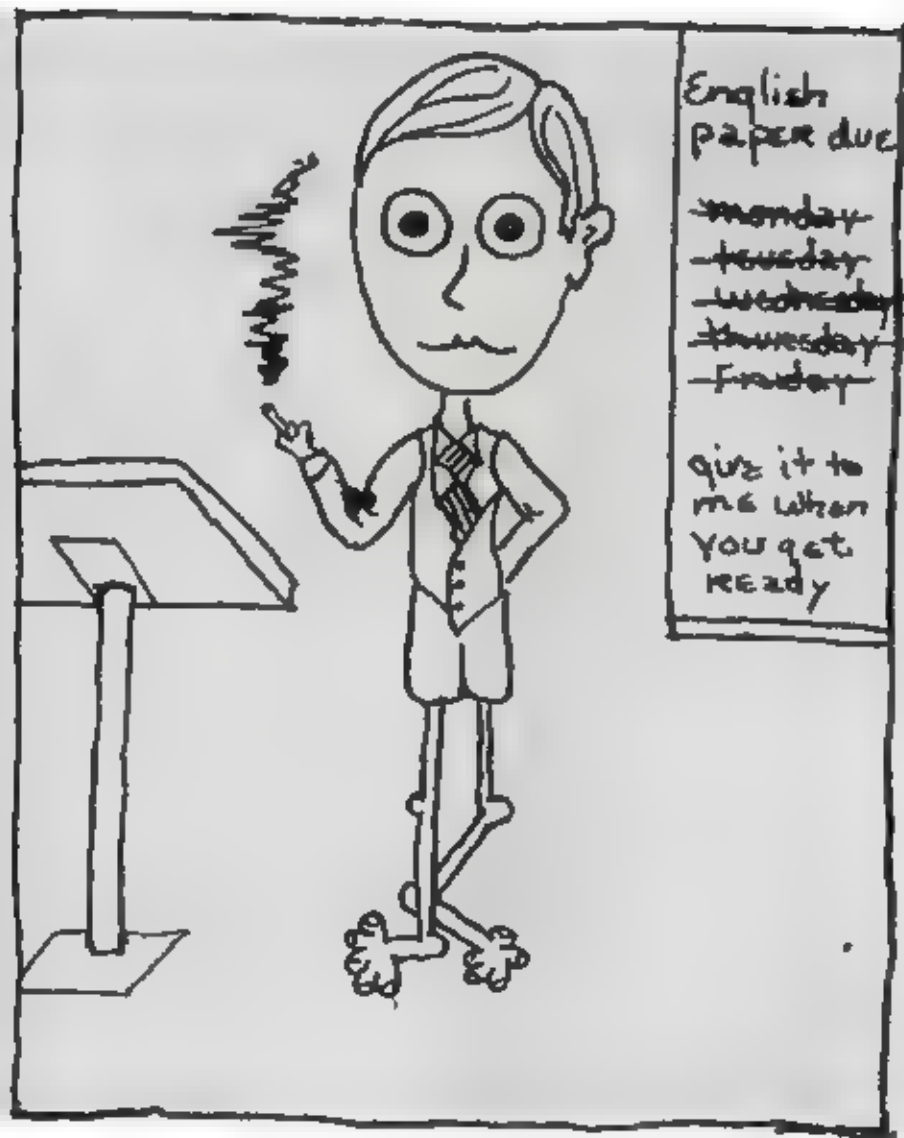 English
paper due
monday
teusday
wednesday
thuresday
Friday
give it to
me when
you get
ready